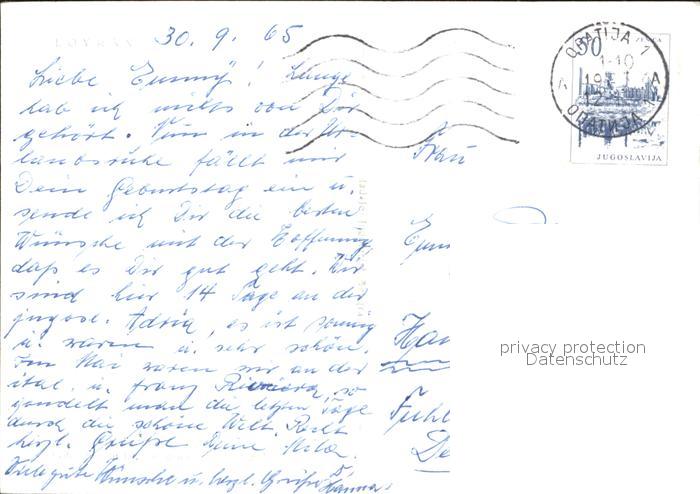 LOVRAN
30. 9. 65
Liebe Emmy! Lange
hab ich nichts von Dir
gehört. Nun in der Ur-
laubsruhe fällt mir
Dein Geburtstag ein u.
sende ich Dir die besten
Wünsche mit der Hoffnung,
daß es Dir gut geht. Wir
sind hier 14 Tage an der
jugosl. Adria, es ist sonnig
u. warm u. sehr schön.
Im Mai waren wir an der
ital. u. franz. Riviera, so
gondelt man die letzten Tage
durch die schöne Welt. Recht
herzl. Grüße Deine
Viele gute Wünsche u. herzl. Grüße
Hanna.
50
OPATIJA 1
1-10
A A
12
JUGOSLAVIJA
Frau
Emm
Han
Fuhl
De
privacy protection
Datenschutz